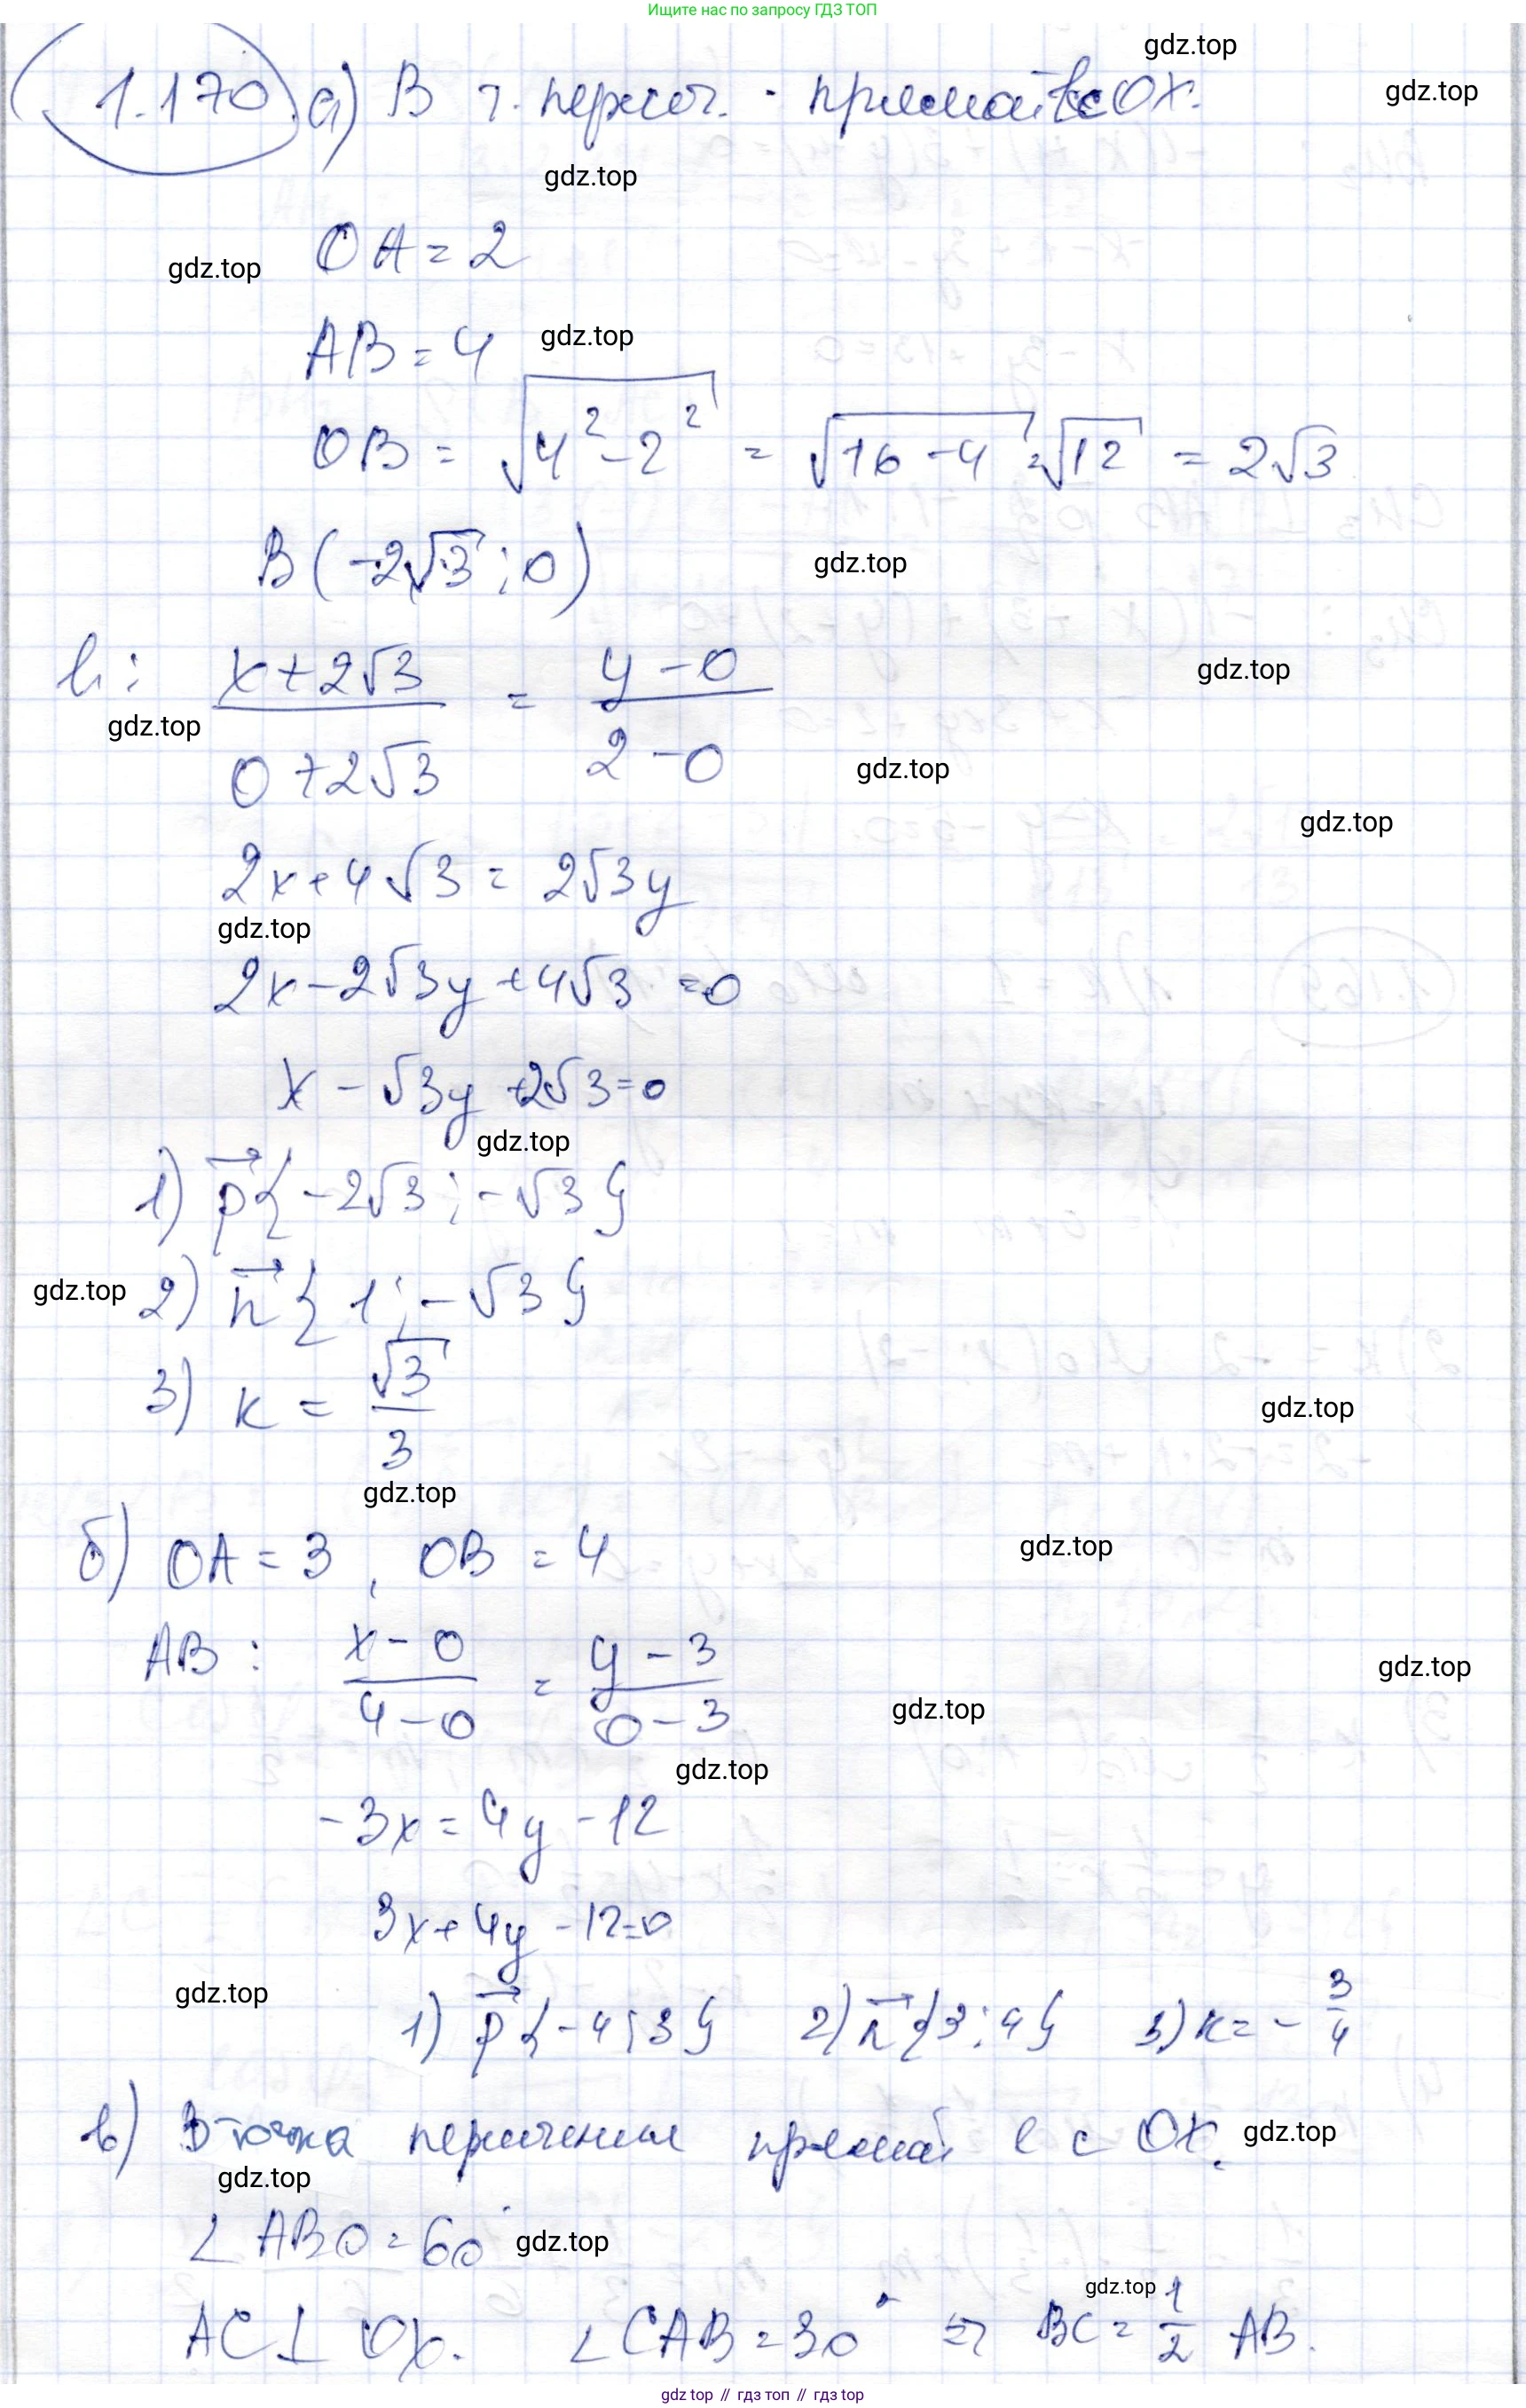 Ищите нас по запросу ГДЗ ТОП
gdz.top
1.170 а) B т. пересеч. прямой l с OX.
gdz.top
gdz.top
OA = 2
gdz.top
AB = 4
gdz.top
OB = √(4² - 2²) = √(16 - 4) = √12 = 2√3
B(-2√3; 0)
gdz.top
l: (x + 2√3)/(0 + 2√3) = (y - 0)/(2 - 0)
gdz.top
gdz.top
gdz.top
gdz.top
2x + 4√3 = 2√3y
gdz.top
2x - 2√3y + 4√3 = 0
x - √3y + 2√3 = 0
gdz.top
1) p⃗{-2√3; -√3}
2) n⃗{1; -√3}
gdz.top
3) k = √3/3
gdz.top
gdz.top
б) OA = 3, OB = 4
gdz.top
AB: (x - 0)/(4 - 0) = (y - 3)/(0 - 3)
gdz.top
gdz.top
gdz.top
-3x = 4y - 12
3x + 4y - 12 = 0
gdz.top
1) p⃗{-4; 3} 2) n⃗{3; 4} 3) k = -3/4
в) B точка пересечения прямой l с OX.
gdz.top
gdz.top
∠ABO = 60°
gdz.top
gdz.top
AC ⊥ OX. ∠CAB = 30° ⇒ BC = 1/2 AB.
gdz.top // гдз топ // гдз top